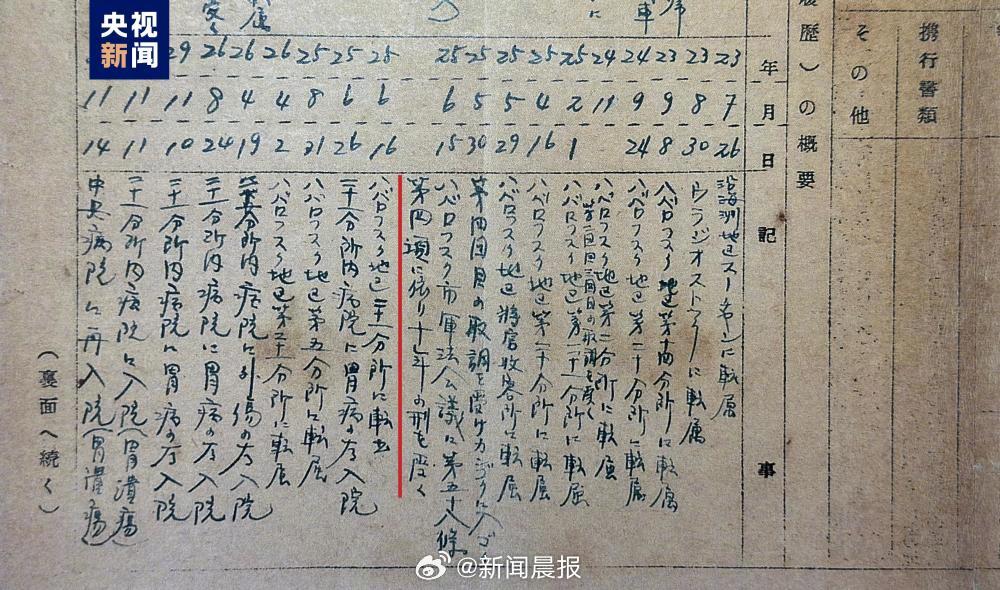 携行書類
その他
履歴)の概要
年 月 日 記事
23 7 26 沿海洲地区スーチャンに転属
23 8 30 ウラジオストックに転属
23 9 8 ハバロフスク地区第十四分所に転属
24 9 24 ハバロフスク地区第二十分所に転属
24 11 ハバロフスク地区第二分所に転属
三回目の取調を受く
25 2 1 ハバロフスク地区第二十分所に転属
25 4 16 ハバロフスク地区第二十分所に転属
25 5 29 ハバロフスク地区将官收容所に転属
25 5 30 第四回目の取調を受けカンゴクに入ゴク
25 6 15 ハバロフスク市軍法会議に第五十八條
第四項に依り 年の刑を受く
25 6 16 ハバロフスク地区二十一分所に転出
25 6 26 二十一分所内病院に胃病の為入院
25 8 31 ハバロフスク地区第五分所に転属
26 4 2 ハバロフスク地区第二十一分所に転属
26 4 19 分所内病院に外傷の為入院
26 8 24 二十一分所内病院に胃病の為入院
29 11 10 二十一分所内病院に胃病の為入院
11 11 二十一分所内病院に入院(胃潰瘍)
11 14 中央病院に再入院(胃潰瘍)
(裏面へ続く)
央视
新闻
@新闻晨报